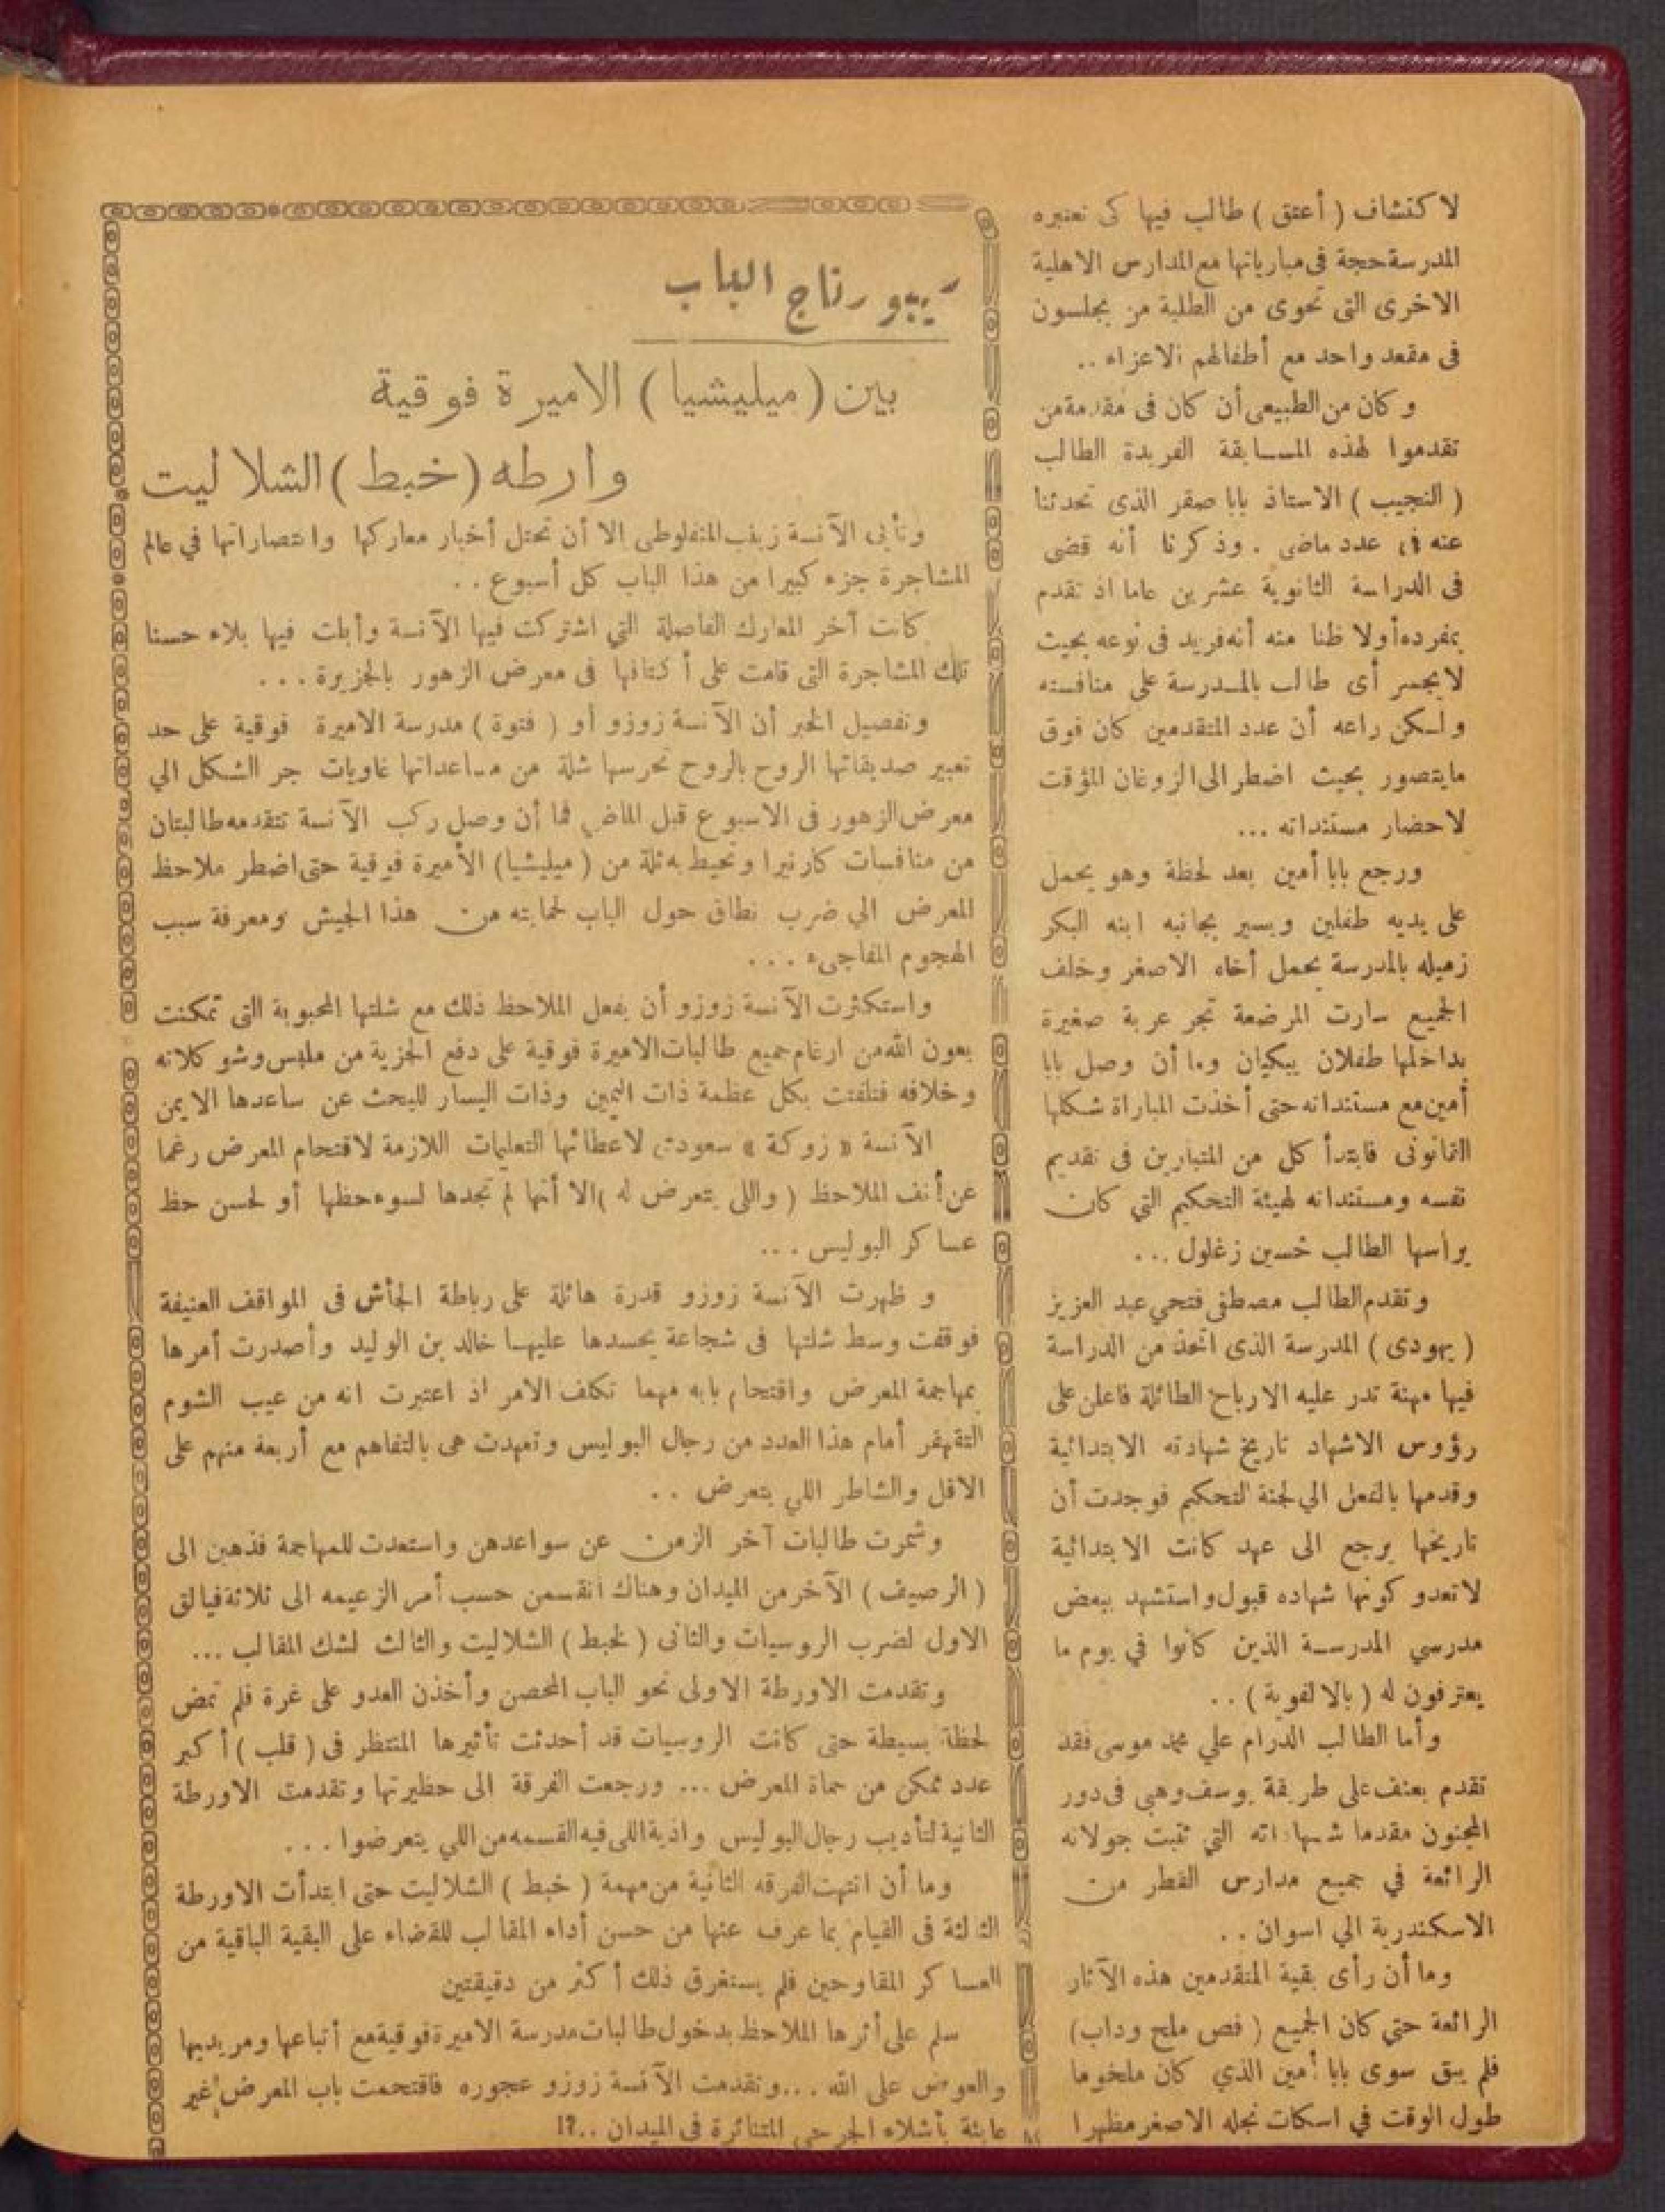 لاكتشاف ( أعتق ) طالب فيها كى تعتبره
المدرسة حجة فى مبارياتها مع المدارس الاهلية
الاخرى التى تحوى من الطلبة من يجلسون
فى مقعد واحد مع أطفالهم الاعزاء ..
وكان من الطبيعى أن كان فى مقدمة من
تقدموا لهذه المسابقة الفريدة الطالب
( النجيب ) الاستاذ بابا صقر الذى تحدثنا
عنه فى عدد ماضى . وذكرنا أنه قضى
فى الدراسة الثانوية عشرين عاما اذ تقدم
بمفرده أولا ظنا منه أنه فريد فى نوعه بحيث
لا يجسر أى طالب بالمدرسة على منافسته
ولكن راعه أن عدد المتقدمين كان فوق
ما يتصور بحيث اضطر الى الزوغان المؤقت
لاحضار مستنداته ...
ورجع بابا أمين بعد لحظة وهو يحمل
على يديه طفلين ويسير بجانبه ابنه البكر
زميله بالمدرسة يحمل أخاه الاصغر وخلف
الجميع سارت المرضعة تجر عربة صغيرة
بداخلها طفلان يبكيان وما أن وصل بابا
أمين مع مستنداته حتى أخذت المباراة شكلها
القانونى فابتدأ كل من المتبارين فى تقديم
نفسه ومستنداته لهيئة التحكيم التي كان
يرأسها الطالب حسين زغلول ...
وتقدم الطالب مصطفى فتحي عبد العزيز
( يهودى ) المدرسة الذى اتخذ من الدراسة
فيها مهنة تدر عليه الارباح الطائلة فاعلن على
رؤوس الاشهاد تاريخ شهادته الابتدائية
وقدمها بالفعل الي لجنة التحكيم فوجدت أن
تاريخها يرجع الى عهد كانت الابتدائية
لا تعدو كونها شهاده قبول واستشهد ببعض
مدرسي المدرسة الذين كانوا في يوم ما
يعترفون له ( بالالفوية ) ..
وأما الطالب الدرام علي محمد موسى فقد
تقدم بعنف على طريقة يوسف وهبى فى دور
المجنون مقدما شهاداته التي تثبت جولاته
الرائعة في جميع مدارس القطر من
الاسكندرية الي اسوان ..
وما أن رأى بقية المتقدمين هذه الآثار
الرائعة حتي كان الجميع ( فص ملح وداب )
فلم يبق سوى بابا أمين الذي كان ملخوما
طول الوقت في اسكات نجله الاصغر مظهرا
ريبورتاج الباب
بين ( ميليشيا ) الاميرة فوقية
وارطه ( خبط ) الشلاليت
وتأبى الآنسة زينب المنفلوطى الا أن تحتل أخبار معاركها وانتصاراتها في عالم
المشاجرة جزء كبيرا من هذا الباب كل أسبوع ..
كانت آخر المعارك الفاصلة التي اشتركت فيها الآنسة وأبلت فيها بلاء حسنا
تلك المشاجرة التى قامت على أكتافها فى معرض الزهور بالجزيرة ...
وتفصيل الخبر أن الآنسة زوزو أو ( فتوة ) مدرسة الاميرة فوقية على حد
تعبير صديقاتها الروح بالروح تحرسها شلة من مساعداتها غاويات جر الشكل الي
معرض الزهور فى الاسبوع قبل الماضى فما أن وصل ركب الآنسة تتقدمه طالبتان
من منافسات كارنيرا وتحيط به ثلة من ( ميليشيا ) الأميرة فوقية حتى اضطر ملاحظ
المعرض الي ضرب نطاق حول الباب لحمايته من هذا الجيش ومعرفة سبب
الهجوم المفاجىء ...
واستكثرت الآنسة زوزو أن يفعل الملاحظ ذلك مع شلتها المحبوبة التى تمكنت
بعون الله من ارغام جميع طالبات الاميرة فوقية على دفع الجزية من ملبس وشوكلاته
وخلافه فتلفتت بكل عظمة ذات اليمين وذات اليسار للبحث عن ساعدها الايمن
الآنسة « زوكة » سعودى لاعطائها التعليمات اللازمة لاقتحام المعرض رغما
عن أنف الملاحظ ( واللى يتعرض له ) الا أنها لم تجدها لسوء حظها أو لحسن حظ
عساكر البوليس ...
وظهرت الآنسة زوزو قدرة هائلة على رباطة الجأش فى المواقف العنيفة
فوقفت وسط شلتها فى شجاعة يحسدها عليها خالد بن الوليد وأصدرت أمرها
بمهاجمة المعرض واقتحام بابه مهما تكلف الامر اذ اعتبرت انه من عيب الشوم
التقهقر أمام هذا العدد من رجال البوليس وتعهدت هى بالتفاهم مع أربعة منهم على
الاقل والشاطر اللي يتعرض ..
وشمرت طالبات آخر الزمن عن سواعدهن واستعدت للمهاجمة فذهبن الى
( الرصيف ) الآخر من الميدان وهناك انقسمن حسب أمر الزعيمه الى ثلاثة فيالق
الاول لضرب الروسيات والثانى ( لخبط ) الشلاليت والثالث لشك المقالب ...
وتقدمت الاورطة الاولى نحو الباب المحصن وأخذن العدو على غرة فلم تمض
لحظة بسيطة حتى كانت الروسيات قد أحدثت تأثيرها المنتظر فى ( قلب ) أكبر
عدد ممكن من حماة المعرض ... ورجعت الفرقة الى حظيرتها وتقدمت الاورطة
الثانية لتأديب رجال البوليس واذية اللى فيه القسمه من اللي يتعرضوا ...
وما أن انتهت الفرقه الثانية من مهمة ( خبط ) الشلاليت حتى ابتدأت الاورطة
الثالثة فى القيام بما عرف عنها من حسن أداء المقالب للقضاء على البقية الباقية من
العساكر المقاوحين فلم يستغرق ذلك أكثر من دقيقتين
سلم على أثرها الملاحظ بدخول طالبات مدرسة الاميرة فوقية مع أتباعها ومريديها
والعوض على الله ... وتقدمت الآنسة زوزو عجوره فاقتحمت باب المعرض غير
عابئة بأشلاء الجرحى المتناثرة فى الميدان ..؟!